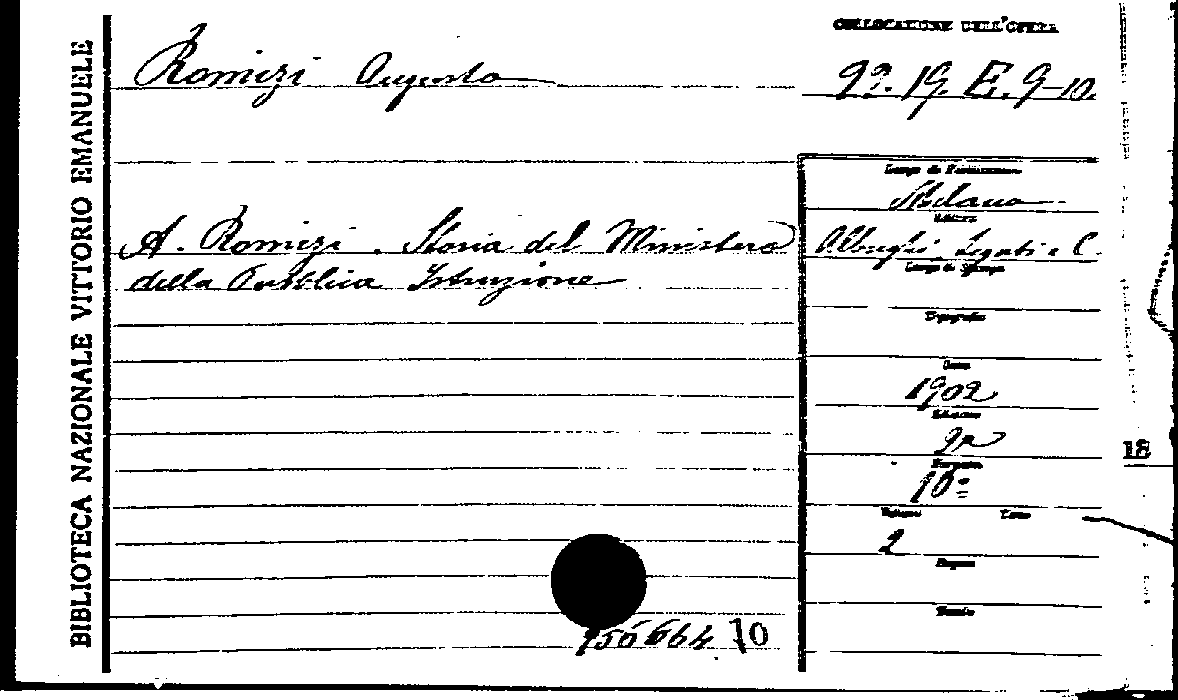 BIBLIOTECA NAZIONALE VITTORIO EMANUELE
COLLOCAZIONE DELL'OPERA
Romizi Augusto
9?. 19. E. 9-10.
Luogo di Pubblicazione
Milano
Editore
A. Romizi. Storia del Ministero
Albrighi, Segati e C.
della Pubblica Istruzione
Luogo di Stampa
Tipografia
Data
1902
Edizione
2a
18
Formato
16º
Volumi
Tomo
2
Pagine
156664 10